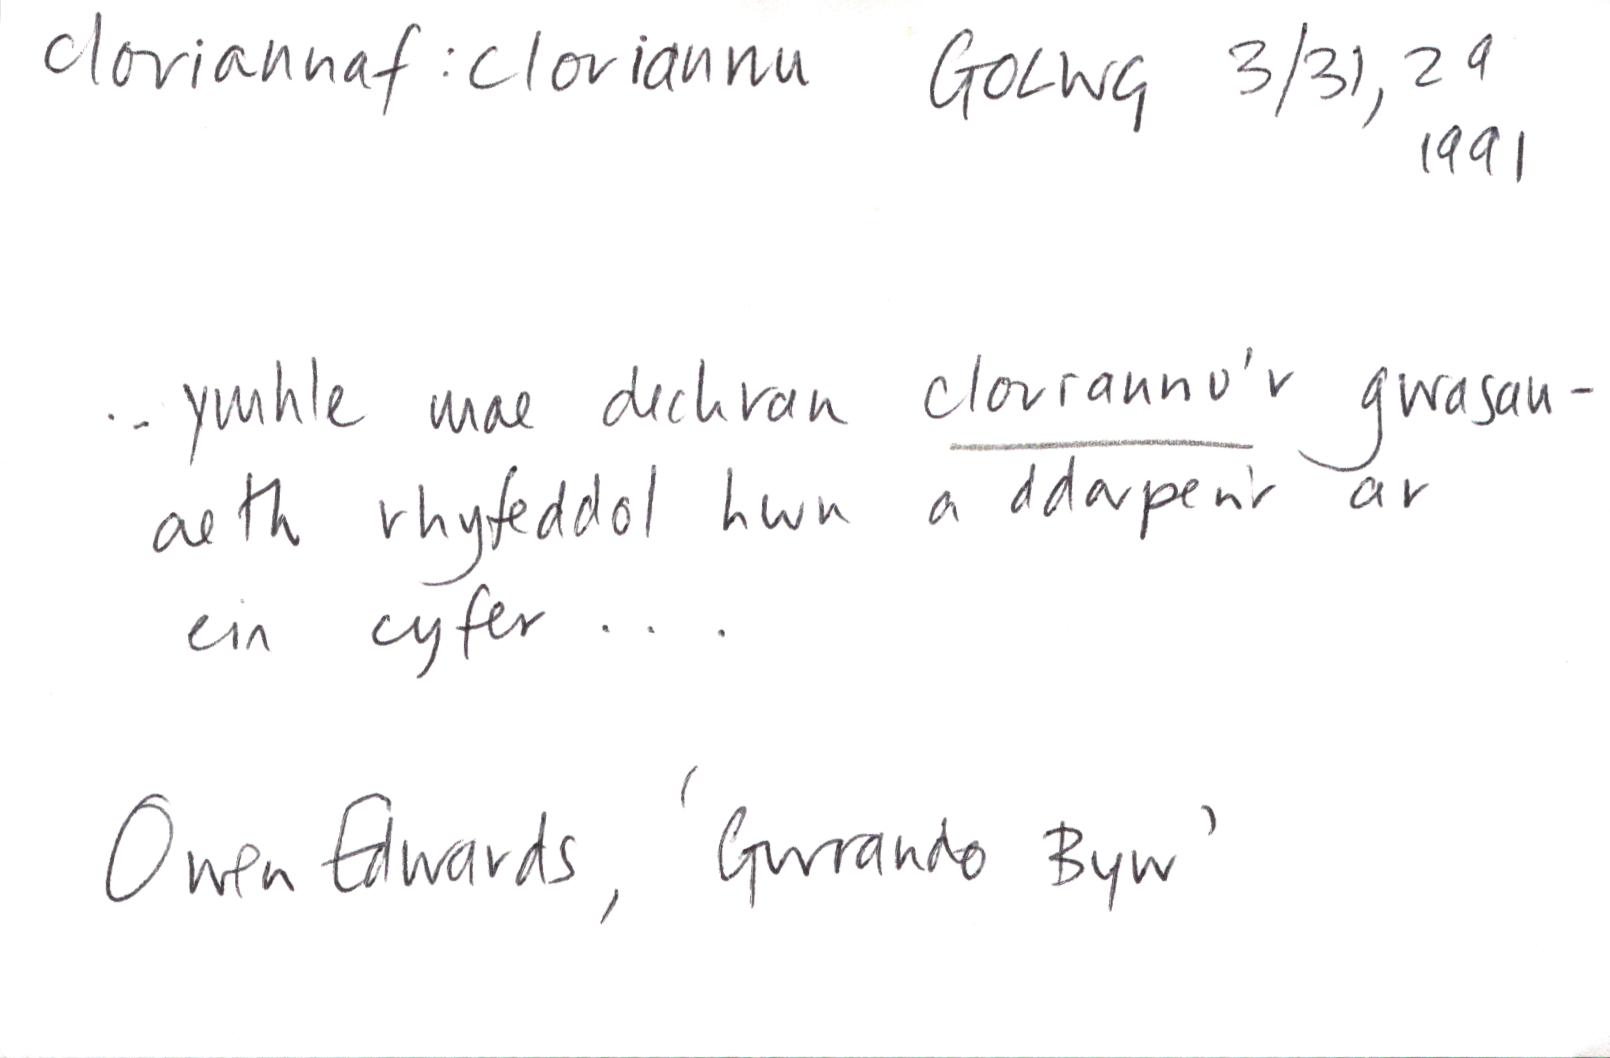 cloriannaf : cloriannu GOLWG 3/31, 29
1991
... ymhle mae dechrau cloriannu'r gwasan-
aeth rhyfeddol hwn a ddarperir ar
ein cyfer ....
Owen Edwards, 'Gwrando Byw'